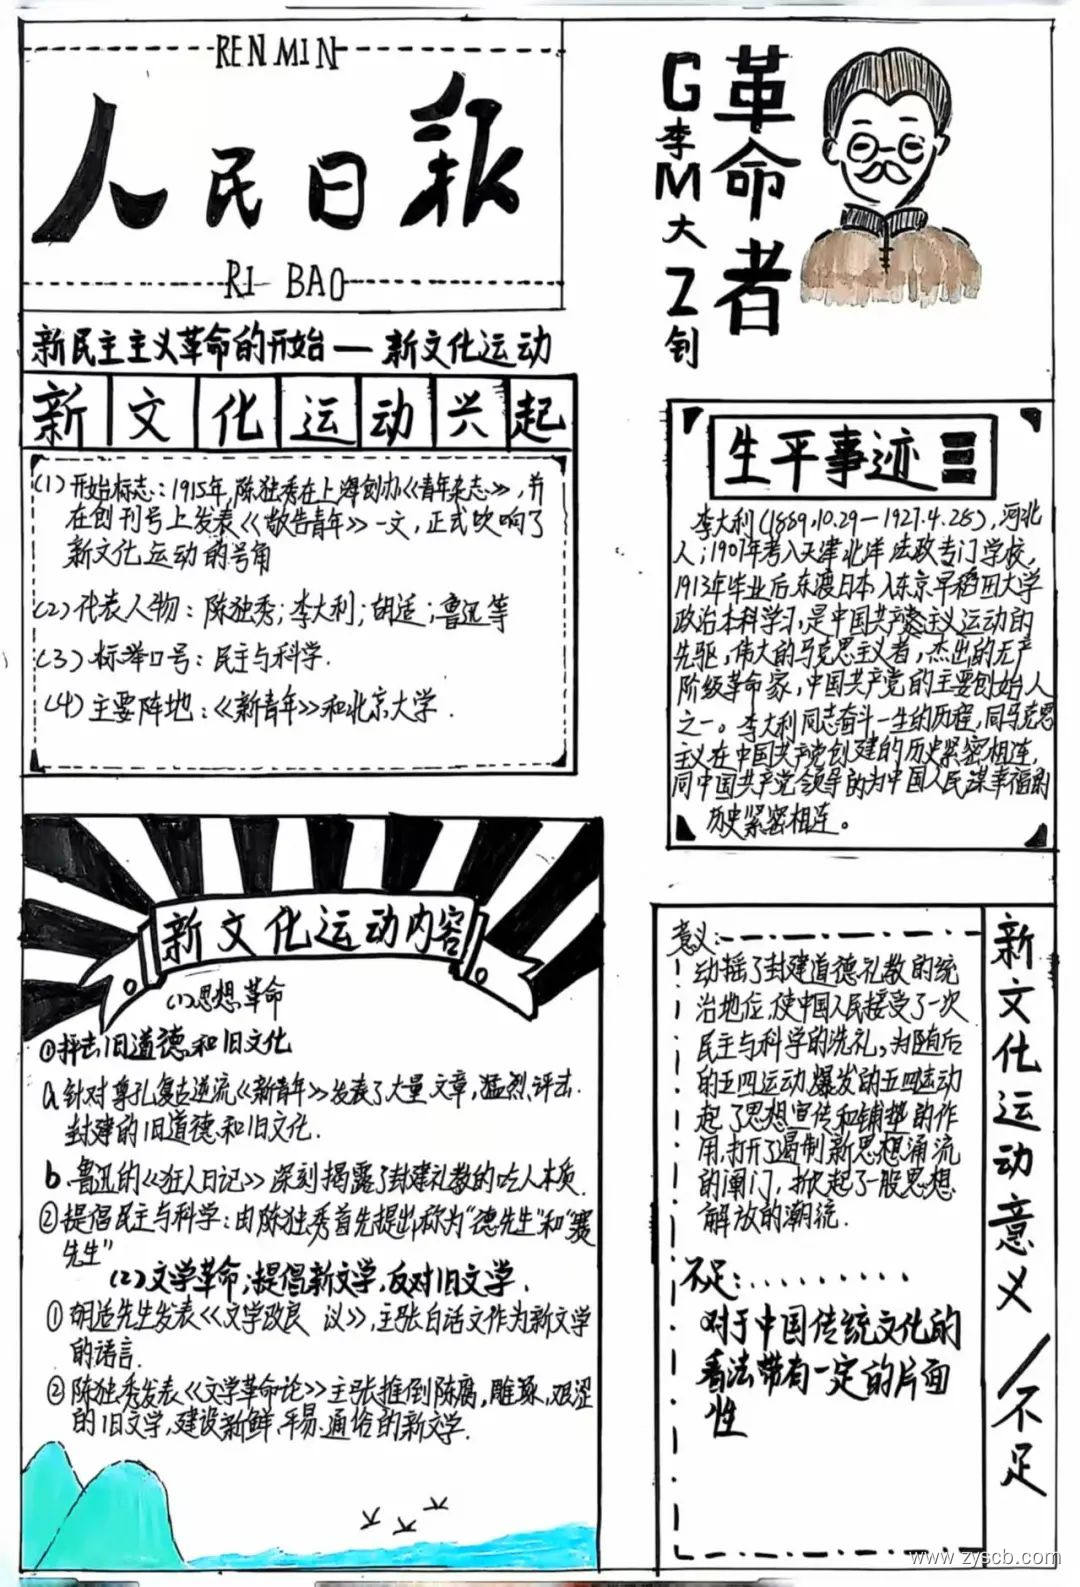 REN MIN
人民日报
RI BAO
新民主主义革命的开始—新文化运动
新文化运动兴起
(1)开始标志：1915年,陈独秀在上海创办《青年杂志》,并
在创刊号上发表《敬告青年》一文,正式吹响了
新文化运动的号角
(2)代表人物：陈独秀;李大利;胡适;鲁迅等
(3)标举口号：民主与科学.
(4)主要阵地：《新青年》和北京大学.
新文化运动内容
(1)思想革命
①抨击旧道德和旧文化
a针对尊孔复古逆流《新青年》发表了大量文章,猛烈评击
封建的旧道德和旧文化.
b.鲁迅的《狂人日记》深刻揭露了封建礼教的吃人本质.
②提倡民主与科学：由陈独秀首先提出,称为“德先生”和“赛
先生”
(2)文学革命;提倡新文学,反对旧文学.
①胡适先生发表《文学改良 议》,主张白话文作为新文学
的语言.
②陈独秀发表《文学革命论》主张推倒陈腐,雕琢,艰涩
的旧文学,建设新鲜.平易.通俗的新文学.
革命者
G李M大Z钊
生平事迹
李大利(1889.10.29—1927.4.28),河北
人;1907年考入天津北洋法政专门学校,
1913年毕业后东渡日本入东京早稻田大学
政治本科学习,是中国共产主义运动的
先驱,伟大的马克思主义者,杰出的无产
阶级革命家,中国共产党的主要创始人
之一。李大利同志奋斗一生的历程,同马克思
主义在中国共产党创建的历史紧密相连,
同中国共产党领导的为中国人民谋幸福的
历史紧密相连。
意义：
动摇了封建道德礼教的统
治地位,使中国人民接受了一次
民主与科学的洗礼,为随后
的五四运动爆发的五四运动
起了思想宣传和铺垫的作
用,打开了遏制新思想涌流
的闸门,掀起了一股思想
解放的潮统.
不足：.........
对于中国传统文化的
看法带有一定的片面
性
新文化运动意义/不足
www.zyscb.com